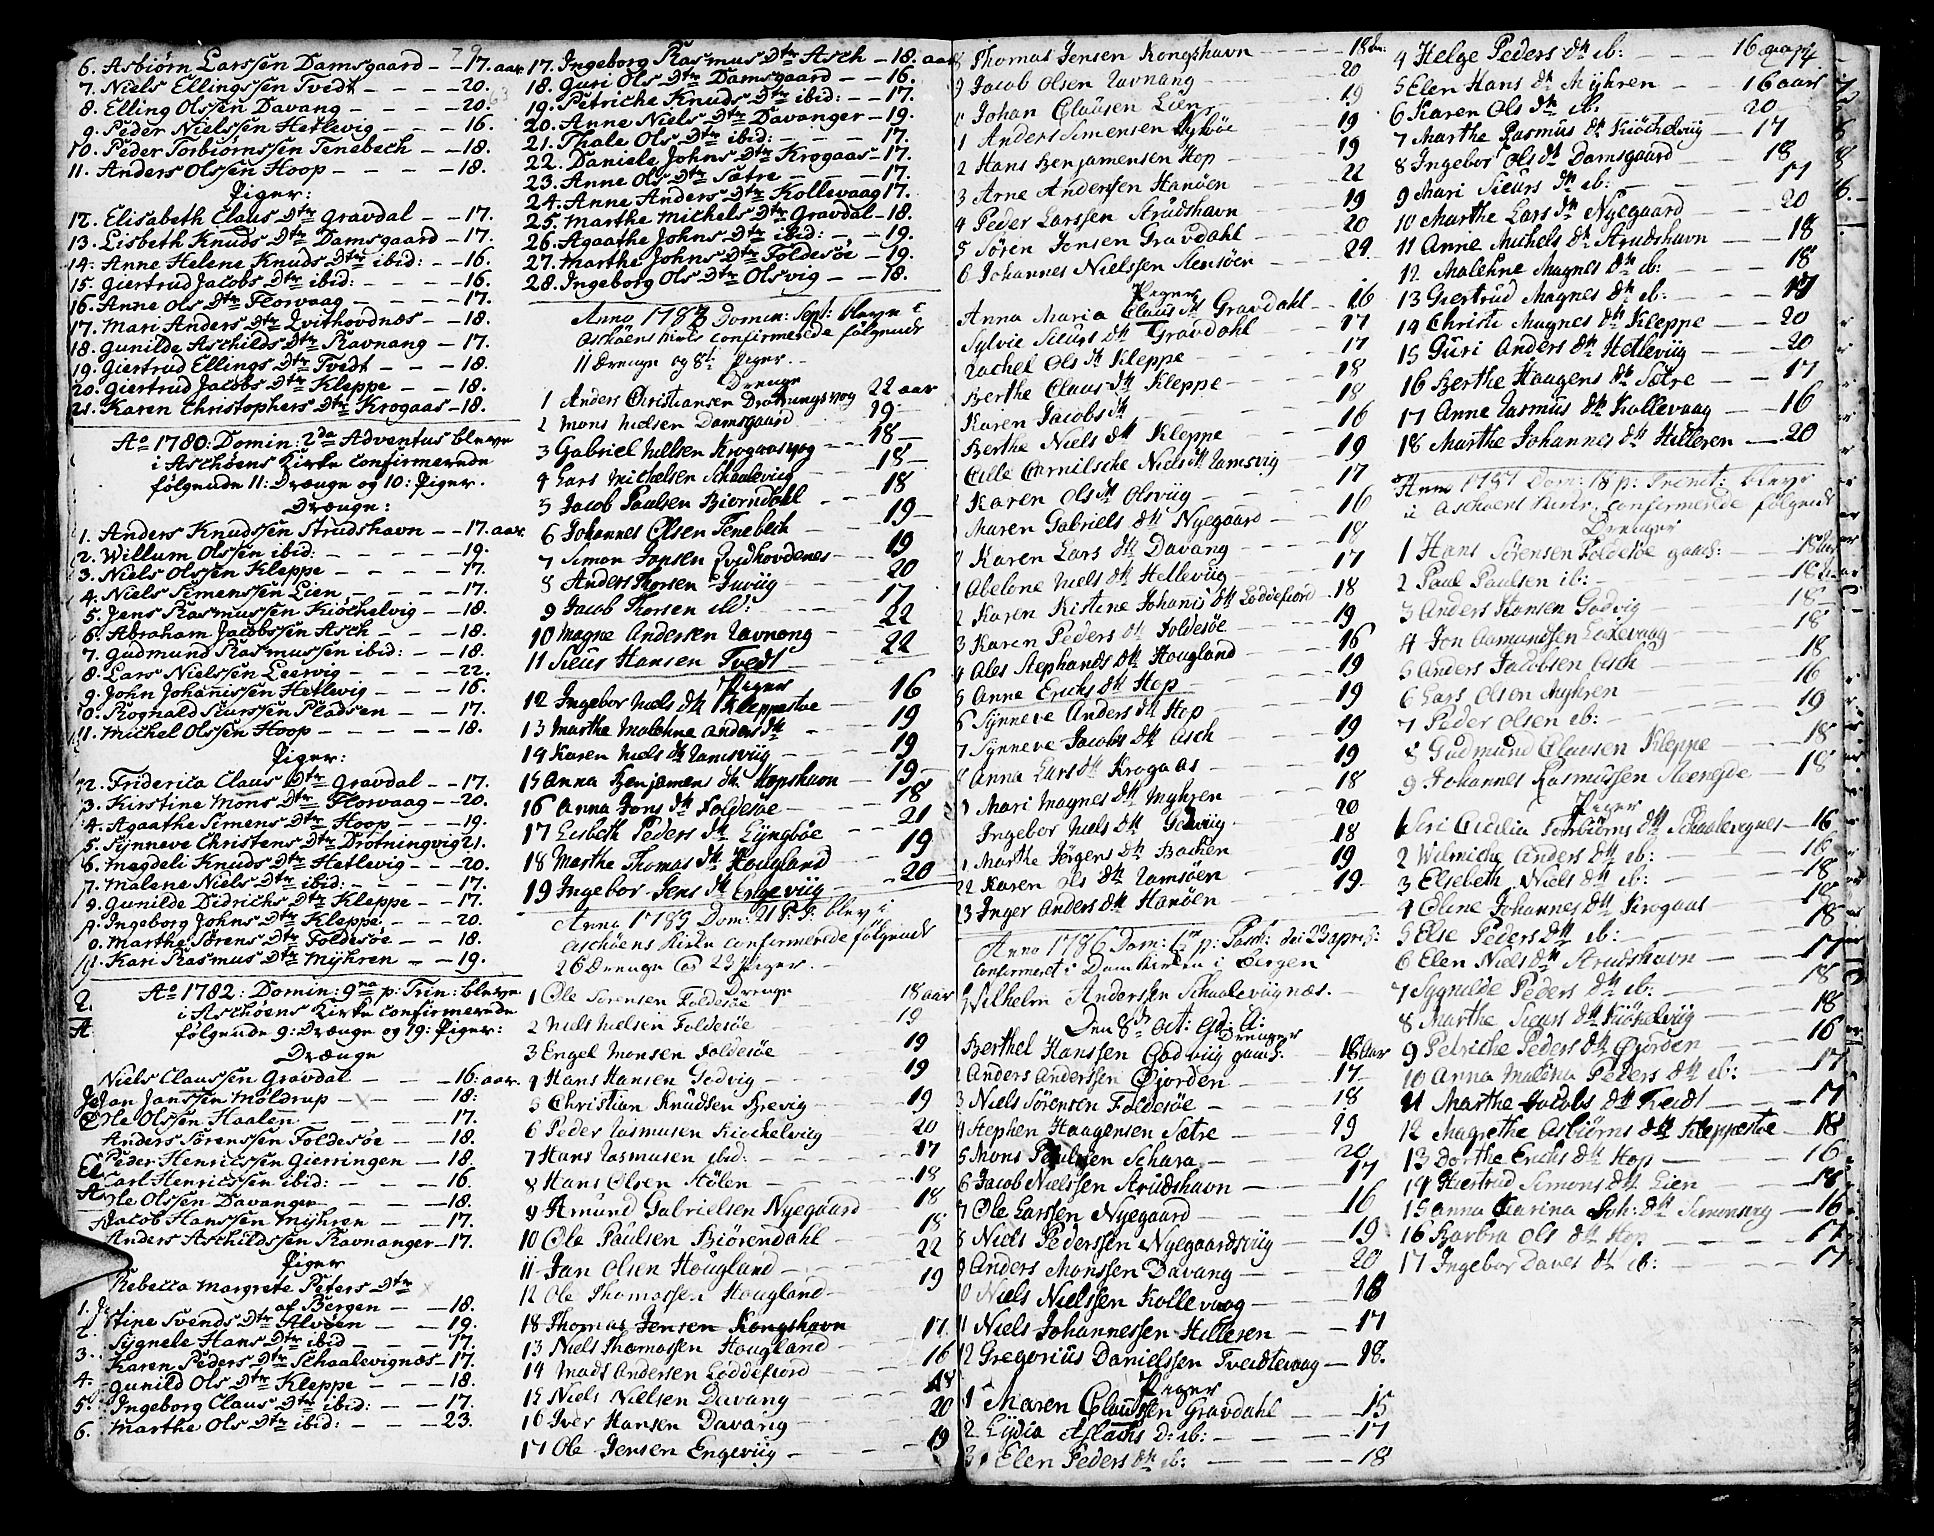 6. Asbiørn Larssen Damsgaard – 17. aar
7. Niels Ellingssen Tvedt – – – 20.
8. Elling Olssen Davang – – – 20.
9. Peder Nielssen Hetlevig – – – 16.
10. Peder Torbiørnssen Tenebech – – 18.
11. Anders Olssen Hoop – – – – 18.
Piger:
12. Elisabeth Claus Dtr Gravdal – – 17.
13. Lisbeth Knuds Dtr Damsgaard – 17.
14. Anne Helene Knuds Dtr ibid: – 16.
15. Giertrud Jacobs Dtr ibid: – – 16.
16. Anne Ols Dtr Florvaag – – – – 17.
17. Mari Anders Dtr Qvithovdnæs – – 18.
18. Gunilde Aschilds Dtr Ravnang – 17.
19. Giertrud Ellings Dtr Tvedt – – 18.
20. Giertrud Jacobs Dtr Kleppe – – 18.
21. Karen Christophers Dtr Krogaas – 18.
Ao 1780: Domin: 2da Adventus blevne
i Aschøens Kirke Confirmerede
følgende 11: Drænge og 10: Piger.
Drænge:
1. Anders Knudssen Strudshavn – – 17. aar
2. Willum Olssen ibid: – – – – 19.
3. Niels Olssen Kleppe – – – – 17.
4. Niels Simenssen Lien – – – – 17.
5. Jens Rasmussen Kiøchelvig – – 18.
6. Abraham Jacobssen Asch – – – 18.
7. Gudmund Rasmussen ibid: – – 18.
8. Lars Nielssen Leervig – – – – 22.
9. John Johanissen Hetlevig – – – 16.
10. Rognald Siurssen Pladsen – – 17.
11. Michel Olssen Hoop – – – – 18.
Piger:
12. Friderica Claus Dtr Gravdal – – 17.
13. Kirstine Mons Dtr Florvaag – – 20.
4. Agaathe Simens Dtr Hoop – – – 19.
5. Synneve Christens Dtr Drotningvig 21.
6. Magdeli Knuds Dtr Hetlevig – – 20.
7. Malene Niels Dtr ibid: – – – – 17.
Gunilde Didrichs Dtr Kleppe – – 17.
Ingeborg Johns Dtr Kleppe – – – 20.
0. Marthe Sørens Dtr Foldesøe – – 18.
Kari Rasmus Dtr Myhren – – 19.
Ao 1782: Domin: 9na p: Trin: blevne
i Aschøens Kirke Confirmerede
følgende 9: Drænge og 19: Piger:
Drænge
Niels Claussen Gravdal – – – 16: aar.
Jan Janssen Møldrup – – – 18:
Ole Olssen Haalen – – – – 17.
Anders Sørenssen Foldesøe – – 18.
Peder Henrichssen Gierringen – 18.
Carl Henrichssen ibid: – – – 16.
Ole Olssen Davanger – – – – 18.
Jacob Hanssen Myhren – – – 17.
Anders Aschildssen Ravnanger – 17.
Piger
Rebecca Margrete Peters Dtr
af Bergen – – 18.
1. Stine Svends Dtr Alvøen – – 19.
2. Sygnele Hans Dtr ibid – – – 17.
3. Karen Peders Dtr Schaalevignæs – 17.
4. Gunild Ols Dtr Kleppe – – – 18.
5. Ingeborg Claus Dtr ibid: – – 17.
6. Marthe Ols Dtr ibid: – – – 23.
17. Ingeborg Rasmus Dtr Asch – 18. aar
18. Guri Ols Dtr Damsgaard – – 16.
19. Petriche Knuds Dtr ibid: – – 17.
20. Anne Niels Dtr Davanger – 19.
21. Thale Ols Dtr ibid: – – – 17.
22. Daniele Johns Dtr Krogaas – 17.
23. Anne Ols Dtr Sætre – – – 17.
24. Anne Anders Dtr Kollevaag 17.
25. Marthe Michels Dtr Gravdal – 18.
26. Agaathe Johns Dtr ibid: – – 19.
27. Marthe Johns Dtr Foldesøe – 19.
28. Ingeborg Ols Dtr Olsvig – – 18.
Anno 1783 Domin: Sept: blevne i
Aschøens Kirke Confirmerede følgende
11 Drenge og 8t Piger.
Drenge
1 Anders Christiansen Drotningsvog 22 aar
2 Mons Nielsen Damsgaard 19 –
3 Gabriel Nielsen Krogaasvog – – 18 –
4 Lars Michelsen Schaalevig – – 18 –
5 Jacob Paulsen Biørndahl – – 18
6 Johannes Olsen Tenebech – – 19 –
7 Simon Jonsen Qvidhovdenes – – 19
8 Anders Thorsen Juviig – – – 20
9 Jacob Thorsen ibd: – – – 17
10 Magne Andersen Ravnang – – 22
11 Sieur Hansen Tvedt – – – 22
Piger
12 Ingebor Niels dtr Kleppestøe – 16
13 Marthe Malehne Anders dtr – – 19
14 Karen Niels dtr Ramsviig – – 19
15 Anna Benjamens dtr Kopshavn – 19 –
16 Anna Jons dtr Foldesøe – – 18
17 Lisbeth Peders dtr Lyngbøe – – 21
18 Marthe Thomas dtr Hougland – 19
19 Ingebor Jens dtr Engeviig – – 20
Anno 1785 Dom: 21 P. T. blev i
Aschøens Kirke Confirmerede følgende
26 Drenge og 23 Piger. –
Drenge
1 Ole Sørensen Foldesøe 18 aar
2 Niels Nielsen Foldesøe 19
3 Engel Monsen Foldesøe – – – 19
4 Hans Hansen Godvig – – – 19
5 Christian Knudsen Brevig – – – 19
6 Peder Rasmusen Kiøchelviig – – 20
7 Hans Rasmusen ibid: – – – 17
8 Hans Olsen Hølen – – – 18
9 Amund Gabrielsen Nyegaard – 18
10 Ole Paulsen Biørendahl – – 18
11 Jan Olsen Hougland – – – 22
12 Ole Thomassen Hougland – – 19
18 Thomas Jensen Kongshavn
13 Niels Thomassen Hougland – – 17
14 Mads Andersen Loddefiord – – 16
15 Niels Nielsen Davang – – – 18
16 Iver Hansen Davang – – – 20
17 Ole Jensen Engeviig – – – 19
8 Thomas Jensen Kongshavn – – – 18 –
9 Jacob Olsen Ravnang – – – 20
Johan Clausen Lien – – – 19
1 Anders Simensen – – – 19
2 Hans Benjamensen Hop – – – 19
3 Arne Anderssen Hanøen – – 22
4 Peder Larssen Strudshavn – – 19
5 Søren Jensen Gravdahl – – – 20
6 Johannes Nielssen Stensøen – – 24
Piger
Anna Maria Claus dtr Gravdahl – – 16
Sylvie Sieurs dtr Gravdahl – – 17
Rachel Ols dtr Kleppe – – 17
Berthe Claus dtr Kleppe – – – 18
Karen Jacobs dtr – – – 18
Berthe Niels dtr Kleppe – – – 16
Cille Cornilsche Niels dtr Ramsvig – 19
Karen Ols dtr Olsviig – – – 17
Maren Gabriels dtr Nyegaard – – 16
Karen Lars dtr Davang – – – 18
1 Abelone Niels dtr Hetleviig – – 17
2 Karen Kistine Johanis dtr Loddefiord – 18
3 Karen Peders dtr Foldesøe – – 19
4 Ales Stephands dtr Hougland – – 16
5 Anne Erichs dtr Hop – – – 19
6 Synneve Anders dtr Hop – – 19
7 Synneve Jacobs dtr Asch – – 19
8 Anna Lars dtr Krogaas – – 19
9 Mari Magnes dtr Myhren – – 18
Ingebor Niels dtr Godviig – – 20
1 Marthe Jørgens dtr Backen – – 18
22 Karen Ols dtr Ramsøen – – 19
23 Inger Anders dtr Hanøen – – 19
Anno 1786 Dom: p: Pasch: dei 23 april:
Confirmeret i Domkirken i Bergen
Vilhelm Anderssen Schaaleviignæs. –
Den 8de Oct: Ejusd. A:
Drenger
Berthel Hanssen Godviig gaml: – 18 aar
2 Anders Anderssen Øjorden – – 17 –
3 Niels Sørensen Foldesøe – – 18
4 Stephen Haagensen Sætre – – 19
5 Mons Paulsen Schara – – – 20
6 Jacob Nielssen Strudshavn – – 17
7 Ole Larssen Nyegaard – – – 16
8 Niels Pederssen Nyegaardsviig – 19
9 Anders Monssen Davang – – 20
10 Niels Nielssen Kollevaag – – 18
11 Niels Johannessen Hilleren – – 17
12 Gregorius Danielssen Tvedtevaag – 18.
Piger
1 Maren Claussen Gravdahl – – 15
2 Lydia Aslachs D: ib: – – – 17
3 Elen Peders dtr ib: – – – 18
4 Helge Peders dtr ib: – – – 16
5 Elen Hans dtr Myhren – – 16 aar
6 Karen Ols dtr ib: – – – 20
7 Marthe Rasmus dtr Kiøchelviig – – 17
8 Ingebor Ols dtr Damsgaard – – 18
9 Mari Sieurs dtr ib: – – – 17
10 Marthe Lars dtr Nyegaard – – 20
11 Anne Michels dtr Strudshavn – – 18
12 Malehne Magnes dtr ib: – – 18
13 Giertrud Magnes dtr ib: – – 17
14 Christi Magnes dtr Kleppe – – 20
15 Guri Anders dtr Hetleviig – – 20
16 Berthe Haagens dtr Sætre – – 17
17 Anne Rasmus dtr Kollevaag – – 16
18 Marthe Johannes dtr Hilleren – 20
Anno 1787 Dom: 18 p: Trinit: blevne
i Aschøens Kirke Confirmerede følgende
Drenger
1 Hans Sørensen Foldesøe gaml: – 18 aar
2 Paul Paulsen ib: – – –
3 Anders Hansen Godvig – – 18
4 Jon Aamundsen Lixevaag – – 18
5 Anders Jacobsen Asch – – 18
6 Lars Olsen Myhren – – – 16
7 Peder Olsen ib: – – – 19
8 Gudmund Clausen Kleppe – – 18
9 Johannes Rasmussen – 18
Piger
1 Siri Cecilia Torbiørns dtr Schaalevignes – 16
2 Wilmiche Anders dtr ib: – – 16
3 Elsebeth Niels dtr ib: – – 18
4 Oline Johannes dtr Krogaas – – 18
5 Else Peders dtr ib: – – – 18
6 Elen Niels dtr Strudshavn – – 17
7 Sygnilde Peders dtr ib: – – 18
8 Marthe Sieurs dtr Kiøkelviig – – 18
9 Petriche Peders dtr Øjorden – – 16
10 Anna Malena Peders dtr ib: – – 17
11 Marthe Jacobs dtr Tvedt – – 17
12 Magrethe Asbiørns dtr Kleppestøe – 18
13 Dorthe Erichs dtr Hop – – 16
14 Giertrud Simons dtr Lien – – 18
15 Anna Carina Joh: dtr Simonsvig – 16
16 Barbra Ols dtr Hop – – – 17
17 Ingebor Daves dtr ib: – – – 17